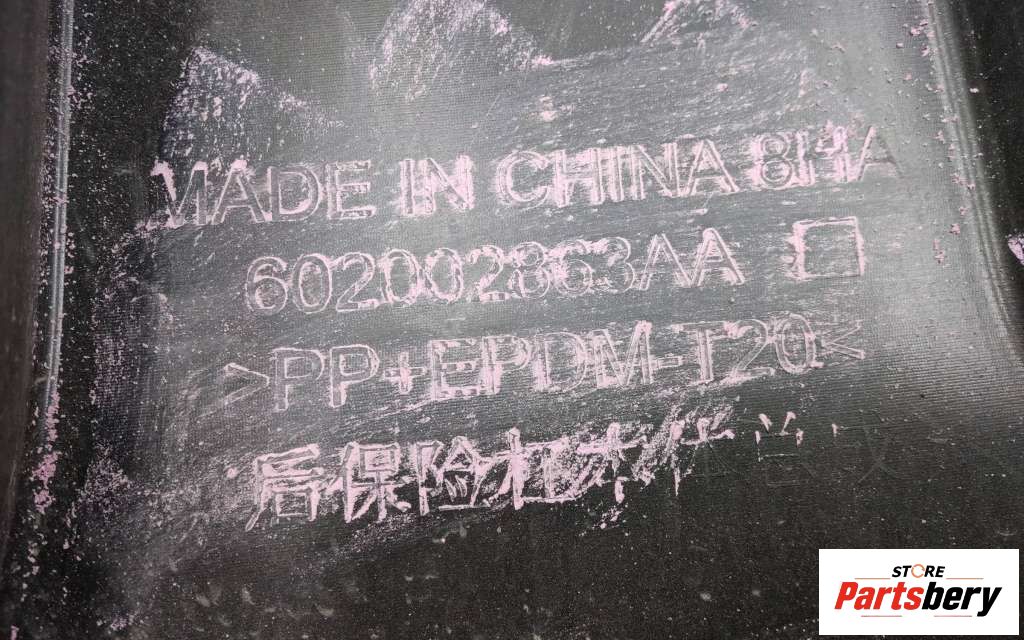 MADE IN CHINA 8HA
602002863AA
>PP+EPDM-T20<
后保险杠本体
STORE
Partsbery